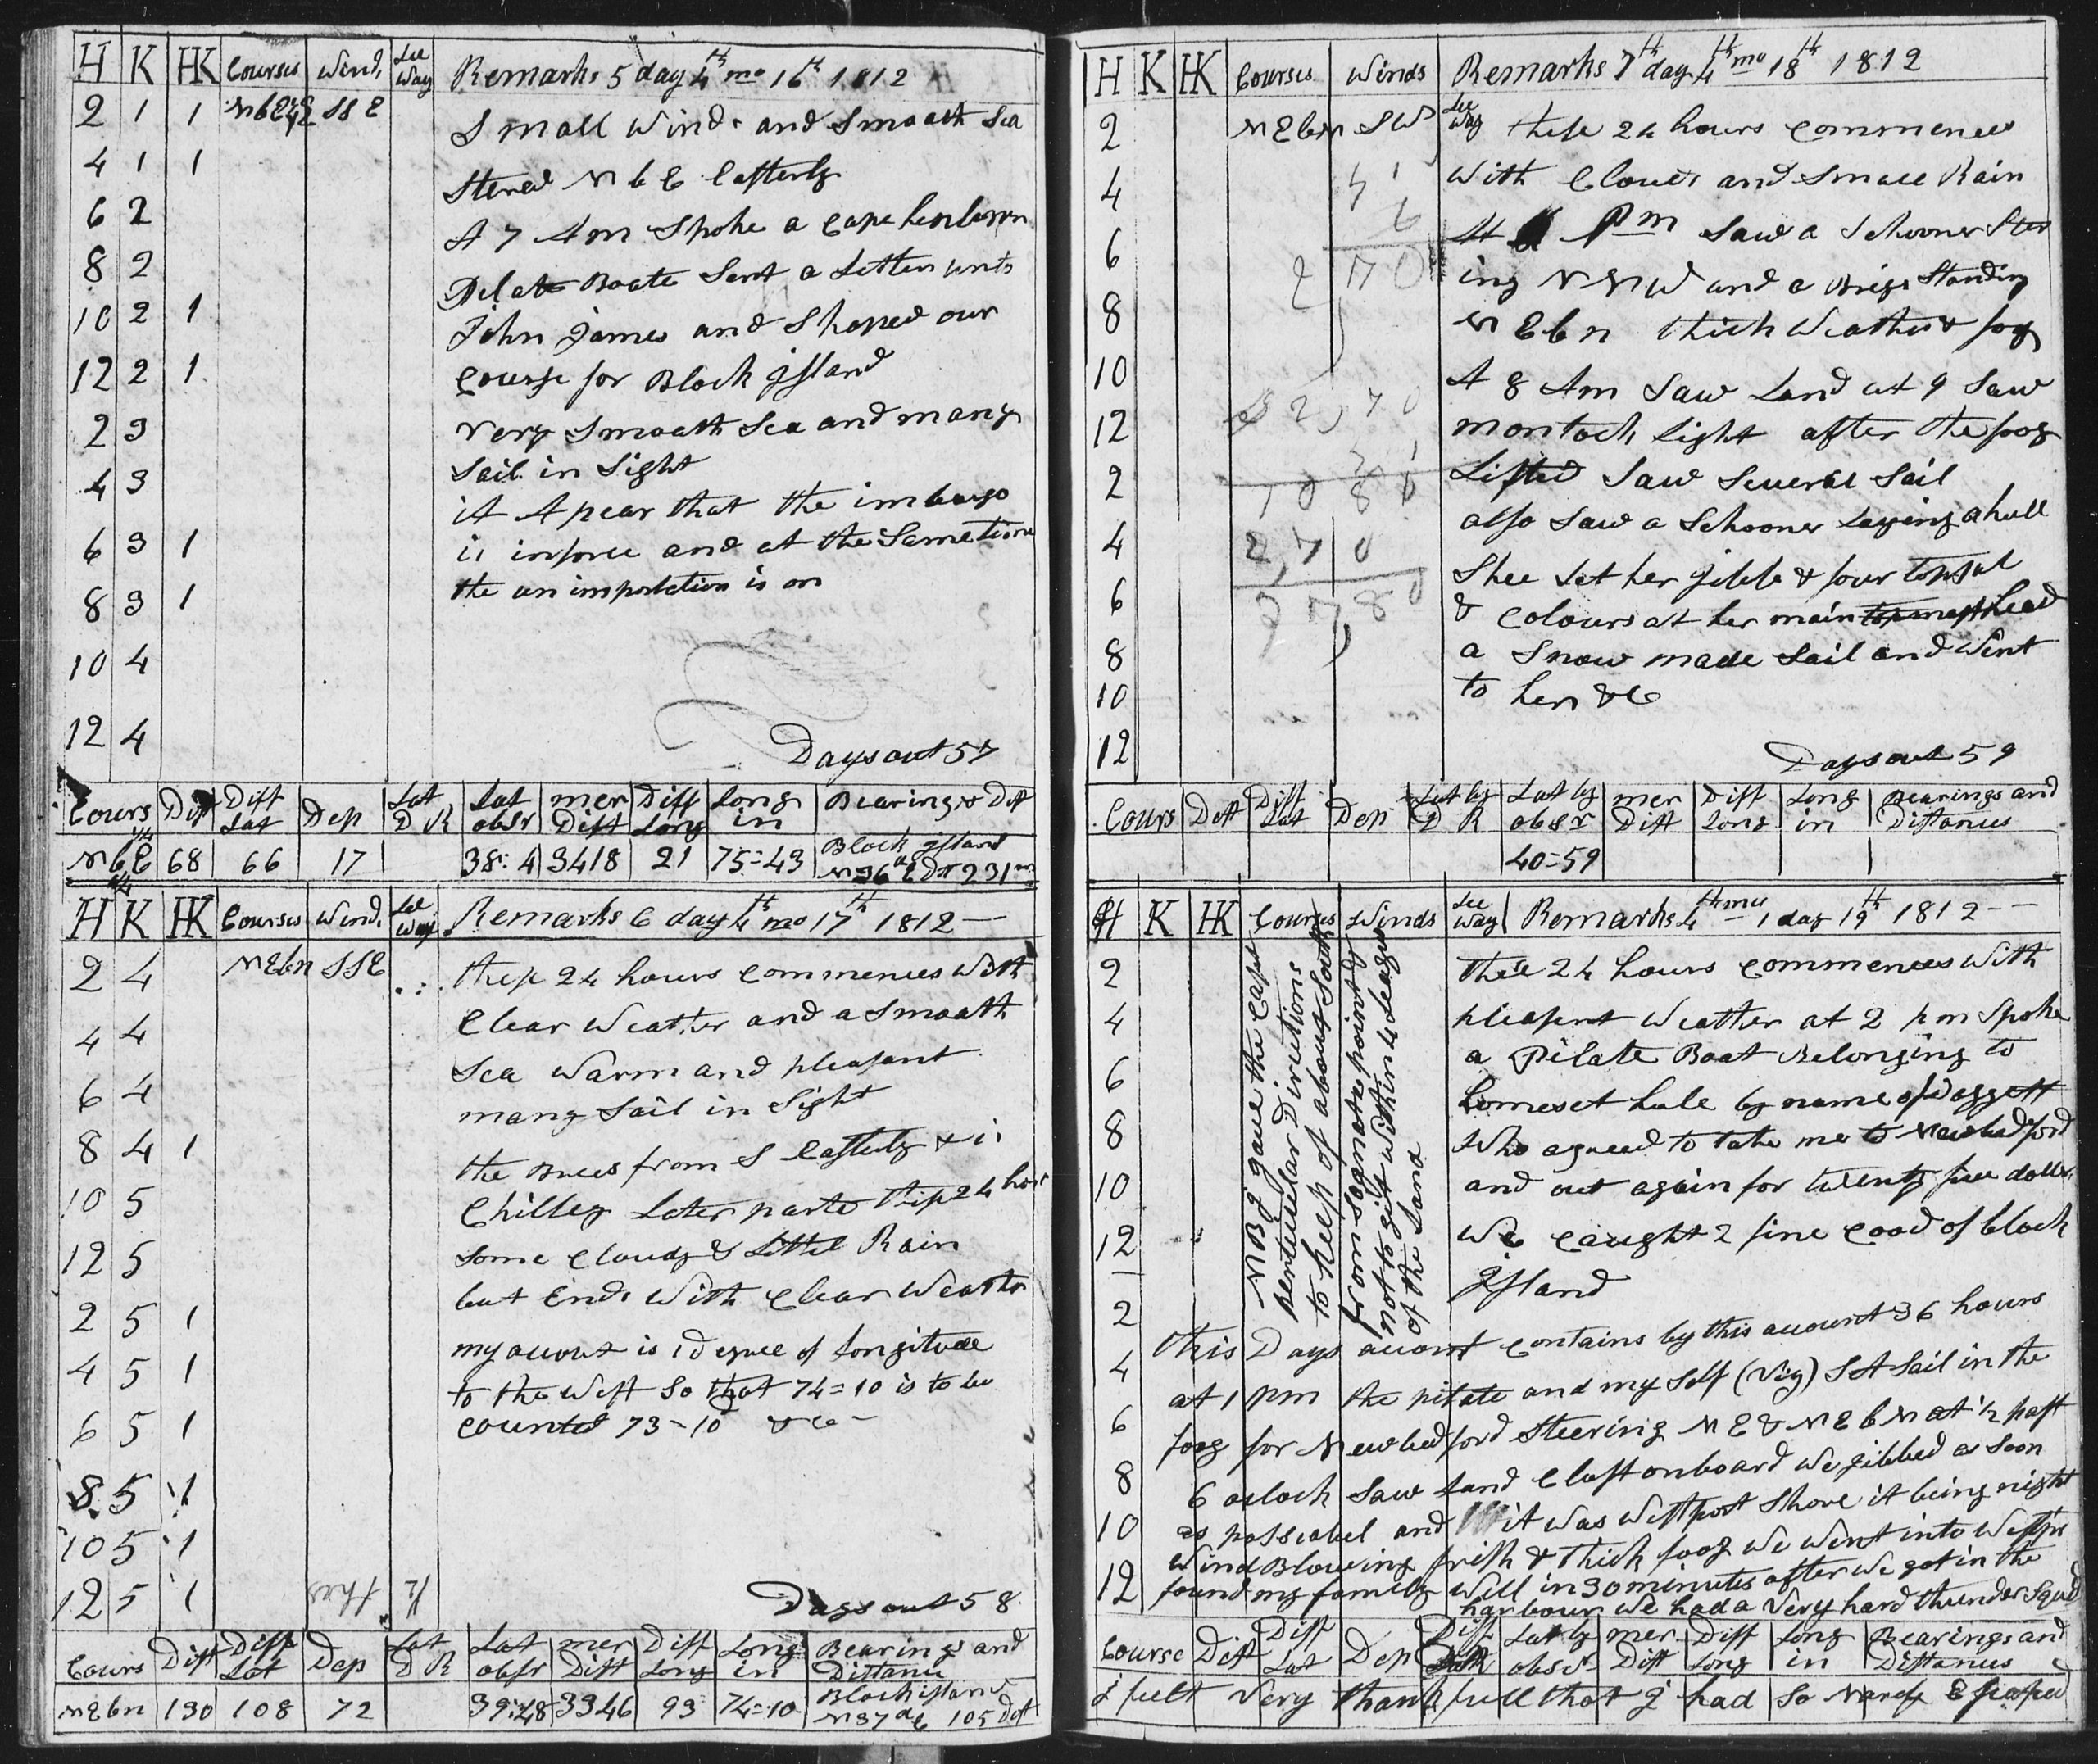 H K HK Courses Wind. Lee Way Remarks 5 day 4th mo 16th 1812
2 1 1 NbE¼E SSE Small Winds and Smooth Sea
4 1 1 Stered N b E Easterly
6 2 At 7 Am Spoke a Cape henlopen
8 2 Pilate Boate Sent a Letter unto
10 2 1 John James and Shaped our
12 2 1 Course for Block Island
2 3 Very Smooth Sea and many
4 3 Sail in Sight
it Apear that the imbargo
6 3 1 is inforce and at the Same time
8 3 1 the un importation is on
10 4
12 4 Days out 57
Cours Dist Diff Lat Dep Lat D R Lat obsr mer Dist Diff Long Long in Bearings Dist
NbE ¼ E 68 66 17 38:4 3418 21 75=43 Block Island N36d E Dt 231 m
H K HK Courses Wind. Lee Way Remarks 6 day 4th mo 17th 1812 —
2 4 NEbn SSE thise 24 hours Commences With
4 4 Clear Weather and a Smooth
Sea Warm and pleasant
6 4 many Sail in Sight
8 4 1 the Brees from S Easterly & is
10 5 Chilley Later parte thise 24 hors
12 5 Some Cloudy & Littel Rain
but Ends With Clear Weather
2 5 1 my acount is 1 Degree of Longitude
4 5 1 to the West So that 74=10 is to be
6 5 1 Counted 73-10 &c -
8 5 1
10 5 1
12 5 1 Days out 58
Cours Dist Diff Lat Dep Lat D R Lat obsr mer Dist Diff Long Long in Bearings and Distance
NEbn 130 108 72 39:48 3346 93 74=10 Block island N37d E 105 Dist
H K HK Courses Winds Remarks 7th day 4th mo 18th 1812
2 NEbN SW Lee Way these 24 hours Commences
4 With Clouds and Smale Rain
At 6 Pm Saw a Schooner Ster
6 ing NNW and a Brigs Standing
8 NEbn thick Weather & fog
10 At 8 Am Saw Land at 9 Saw
12 montock Light after the foog
2 Lifted Saw Several Sail
also Saw a Schooner Laying ahull
4 Shee Set her Jibb & four topsal
6 & Colours at her main topmast head
8 a Snow made Sail and Went
10 to her &c
12 Days out 59
Cours Dist Diff Lat Dep Lat by D R Lat by obsr mer Dist Diff Long Long in Bearings and Distances
40=59
H K HK Courses Winds Lee Way Remarks 4th mo 1 day 19th 1812 --
2 these 24 hours Commences With
4 pleasent Weather at 2 pm Spoke
a Pilate Boat Belonging to
6 homeset hole by name of Doggett
8 Who agreed to take me to Newbedford
10 and out again for twenty five dollr.
12 We Caught 2 fine Cood of block
Island
NB I gave the Capt
perticular Directions
to keep of about South
from Sogonate point by
not to git within 4 Leagues
of the Land
2 this Days acount Contains by this acount 36 hours
4 at 1 pm the pilate and my Self (Viz) Set Sail in the
6 foog for Newbedford Steering NE & NEbN at ½ past
8 6 oclock Saw Land Clost onboard We gibbed as Soon
10 as possiabel and it was Westport Shore it being night
Wind Blowing frish & thick foog We Went into Westpt
12 found my family Well in 30 minutes after We got in the
harbour We had a Very hard thunder Squal
Course Dist Diff Lat Dep Lat by obsr mer Dist Diff Long Long in Bearings and Distances
I feelt Very thankfull that I had So Narely Escaped